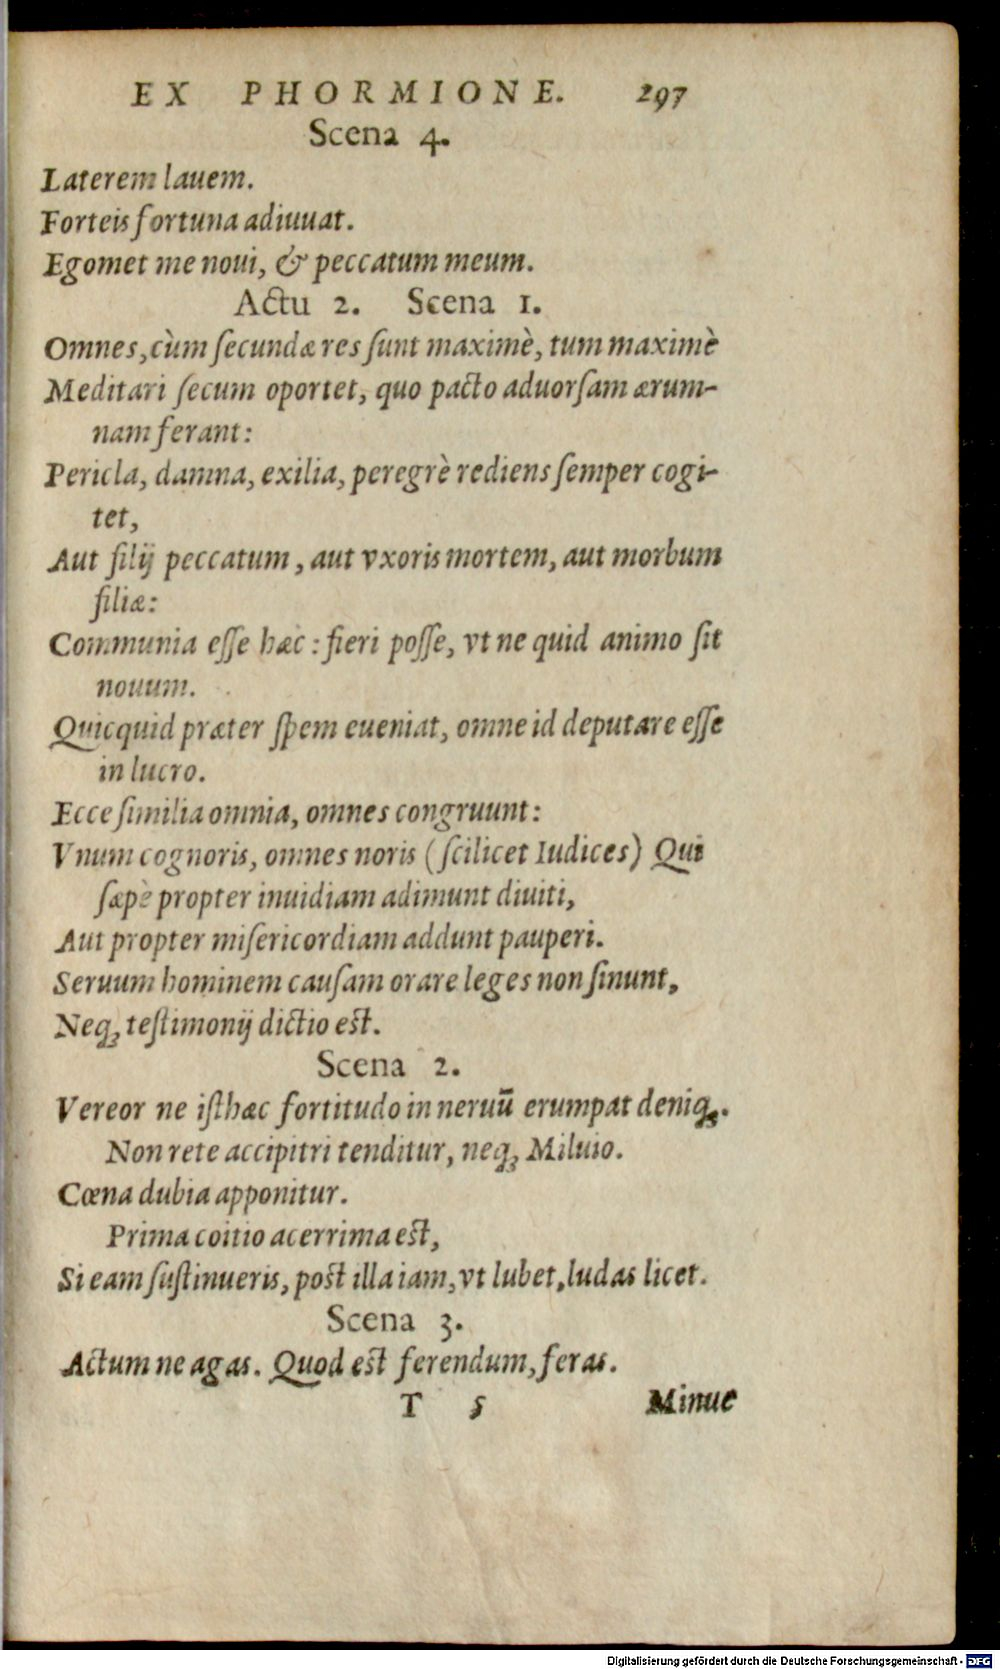 EX PHORMIONE. 297
Scena 4.
Laterem lauem.
Forteis fortuna adiuuat.
Egomet me noui, & peccatum meum.
Actu 2. Scena 1.
Omnes, cùm ſecundæ res ſunt maximè, tum maximè
Meditari ſecum oportet, quo pacto aduorſam ærum-
nam ferant:
Pericla, damna, exilia, peregrè rediens ſemper cogi-
tet,
Aut filij peccatum, aut vxoris mortem, aut morbum
filiæ:
Communia eſſe hæc: fieri poſſe, vt ne quid animo ſit
nouum.
Quicquid præter ſpem eueniat, omne id deputare eſſe
in lucro.
Ecce ſimilia omnia, omnes congruunt:
Vnum cognoris, omnes noris (ſcilicet Iudices) Qui
ſæpè propter inuidiam adimunt diuiti,
Aut propter miſericordiam addunt pauperi.
Seruum hominem cauſam orare leges non ſinunt,
Neq; teſtimonij dictio eſt.
Scena 2.
Vereor ne iſthæc fortitudo in neruū erumpat deniq;.
Non rete accipitri tenditur, neq; Miluio.
Cœna dubia apponitur.
Prima coitio acerrima eſt,
Si eam ſuſtinueris, poſt illa iam, vt lubet, ludas licet.
Scena 3.
Actum ne agas. Quod eſt ferendum, feras.
T 5 Minue
Digitalisierung gefördert durch die Deutsche Forschungsgemeinschaft - DFG